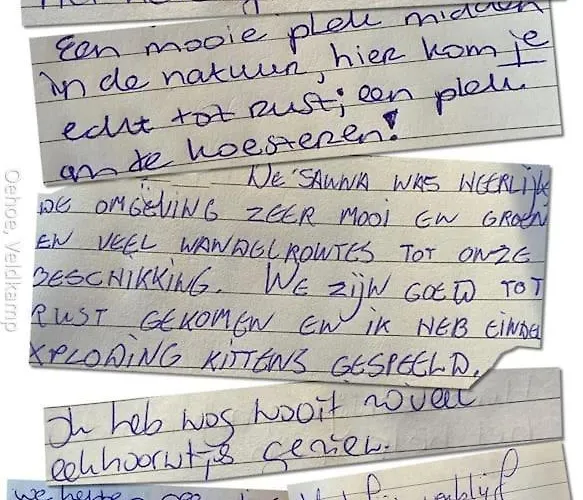 Een mooie plek midden
in de natuur, hier kom je
echt tot rust; een plek
om te koesteren!
DE SAUNA WAS HEERLIJK
DE OMGEVING ZEER MOOI EN GROEN
EN VEEL WANDELROUTES TOT ONZE
BESCHIKKING. WE ZIJN GOED TOT
RUST GEKOMEN EN IK HEB EINDEL
XPLODING KITTENS GESPEELD.
Ik heb nog nooit zoveel
eekhoorntjes gezien.
we hebben
Oehoe, Veldkamp